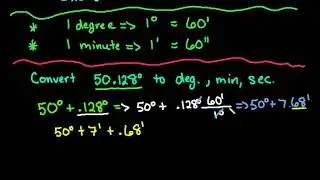 * 1 degree => 1° = 60'
* 1 minute => 1' = 60"
Convert 50.128° to deg., min, sec.
50° + .128° => 50° + .128° 60'/1° => 50° + 7.68'
50° + 7' + .68'